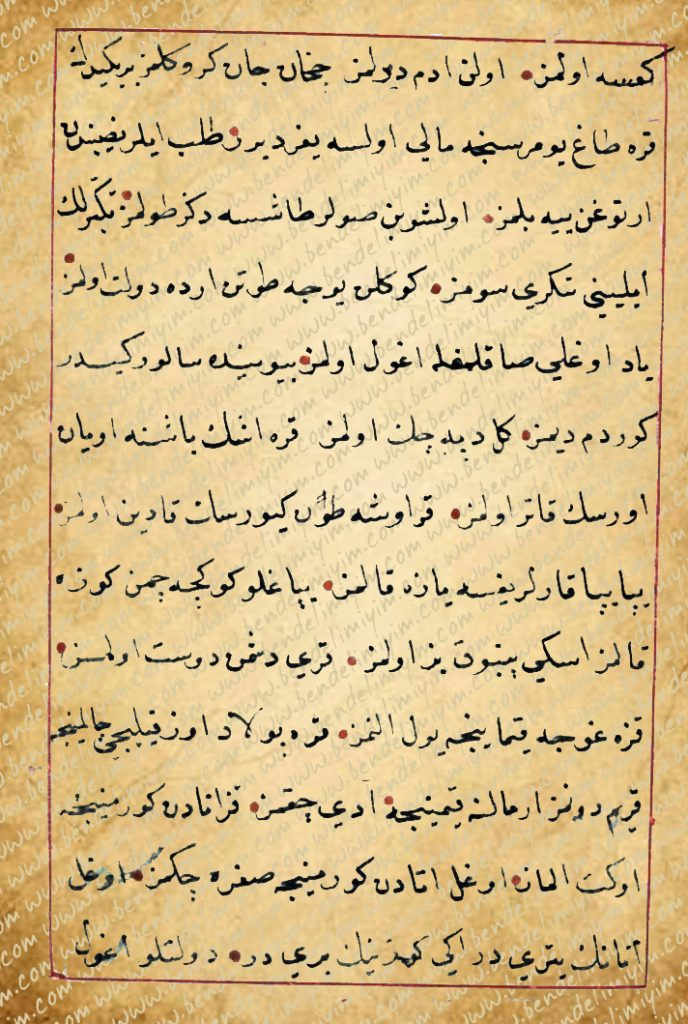 كمسه اولمز اولن ادم ديرلمز چخان جان كرو كلمز بر يكيدك
قره طاغ يومرسنجه مالي اولسه يغر ديرر طلب ايلر نصيبندن
ارتوغن ييه بلمز اولشوبن صولر طاشسه دكز طولمز تكبرلك
ايلييني تنكري سومز كوكلن يوجه طوتن ارده دولت اولمز
ياد اوغلي صاقلمغله اغول اولمز بيوينده سالور كيدر
كوردم ديمز كل دپه چك اولمز قره اشك باشنه اويان
اورسك قاتر اولمز قراوشه طون كيورسك قادين اولمز
يپا يپا قارلر يغسه يازه قالمز يپاغلو كوكجه چمن كوزه
قالمز اسكي پنبوق بز اولمز قري دشمن دوست اولمز
قره غوجه يه قيماينجه يول النمز قره پولاد اوز قيليجي چالمينجه
قريم دونمز ار مالنه قيمينجه ادي چقمز قز انادن كورمينجه
اوكت المز اوغل اتادن كورمينجه صفره چكمز اوغل
اتانك يتري در ايكي كوزينك بري در دولتلو اغول
www.bendelimiyim.com